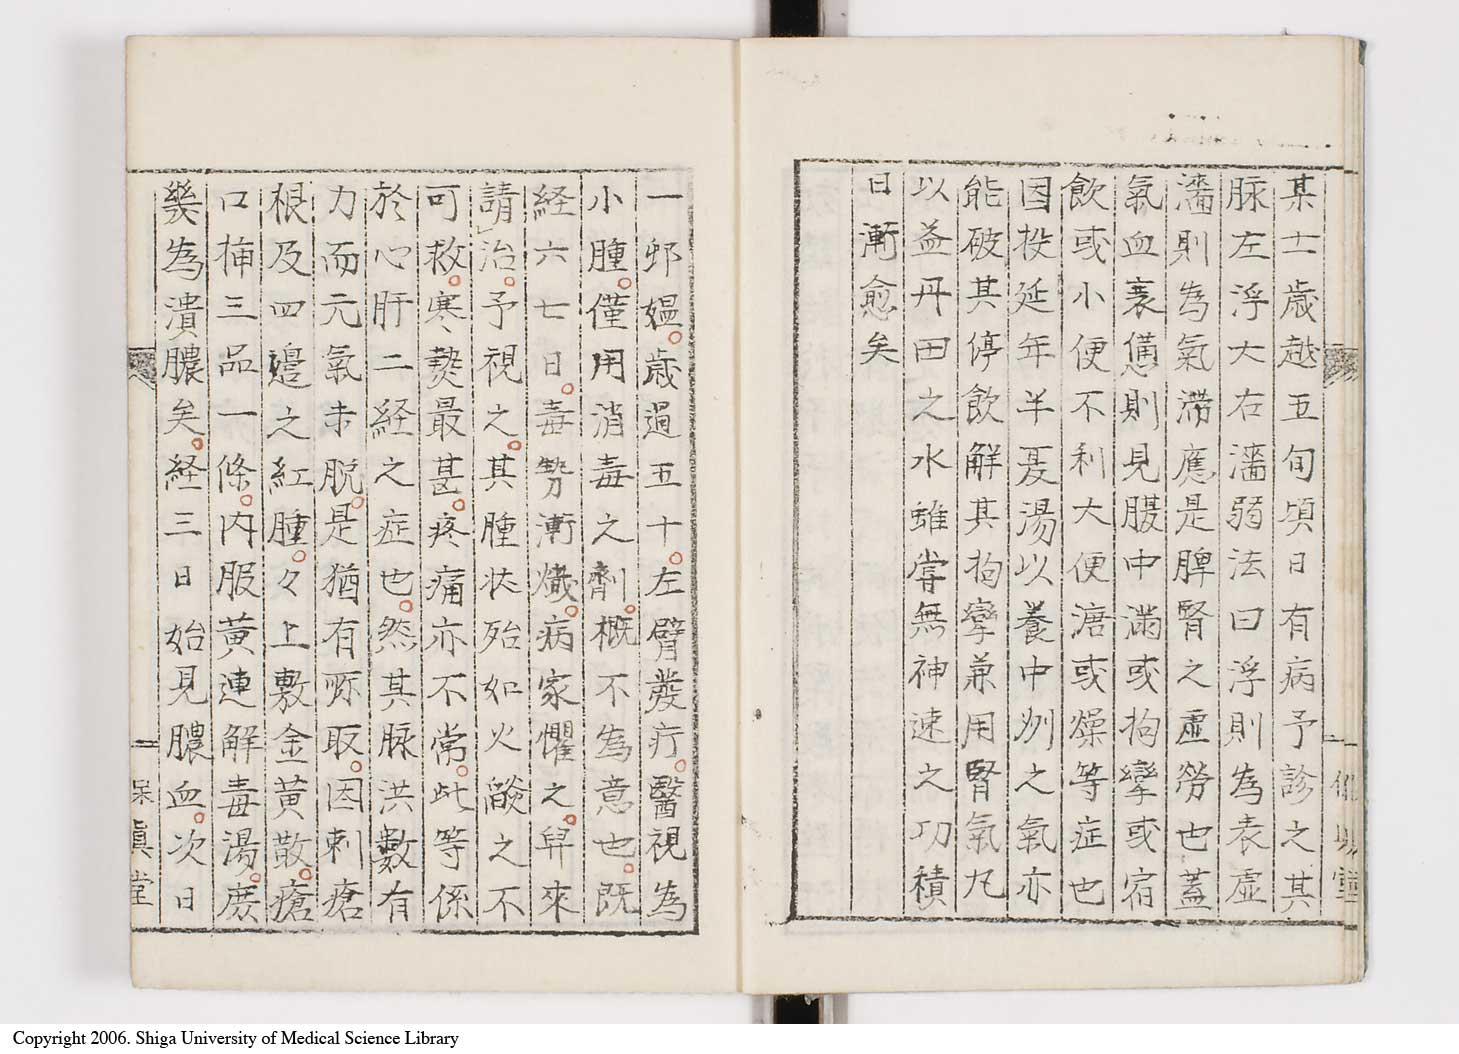 某士歳越五旬頃日有病予診之其
脉左浮大右濇弱法曰浮則為表虚
濇則為氣滞應是脾腎之虚勞也蓋
氣血衰憊則見腹中滿或拘攣或宿
飲或小便不利大便溏或燥等症也
因投延年半夏湯以養中州之氣亦
能破其停飲解其拘攣兼用腎氣丸
以益丹田之水雖甞無神速之功積
日漸愈矣
一邨媼。歳過五十。左臂發疔。醫視為
小腫。僅用消毒之劑。概不為意也。既
経六七日。毒勢漸熾。病家懼之。舁來
請治。予視之。其腫状殆如火燄之不
可救。寒熱最甚。疼痛亦不常。此等係
於心肝二経之症也。然其脉洪數有
力而元氣未脱。是猶有所取。因刺瘡
根及四邊之紅腫。々上敷金黄散。瘡
口挿三品一條。内服黄連解毒湯。庶
幾為潰膿矣。経三日始見膿血。次日
眞堂
Copyright 2006. Shiga University of Medical Science Library